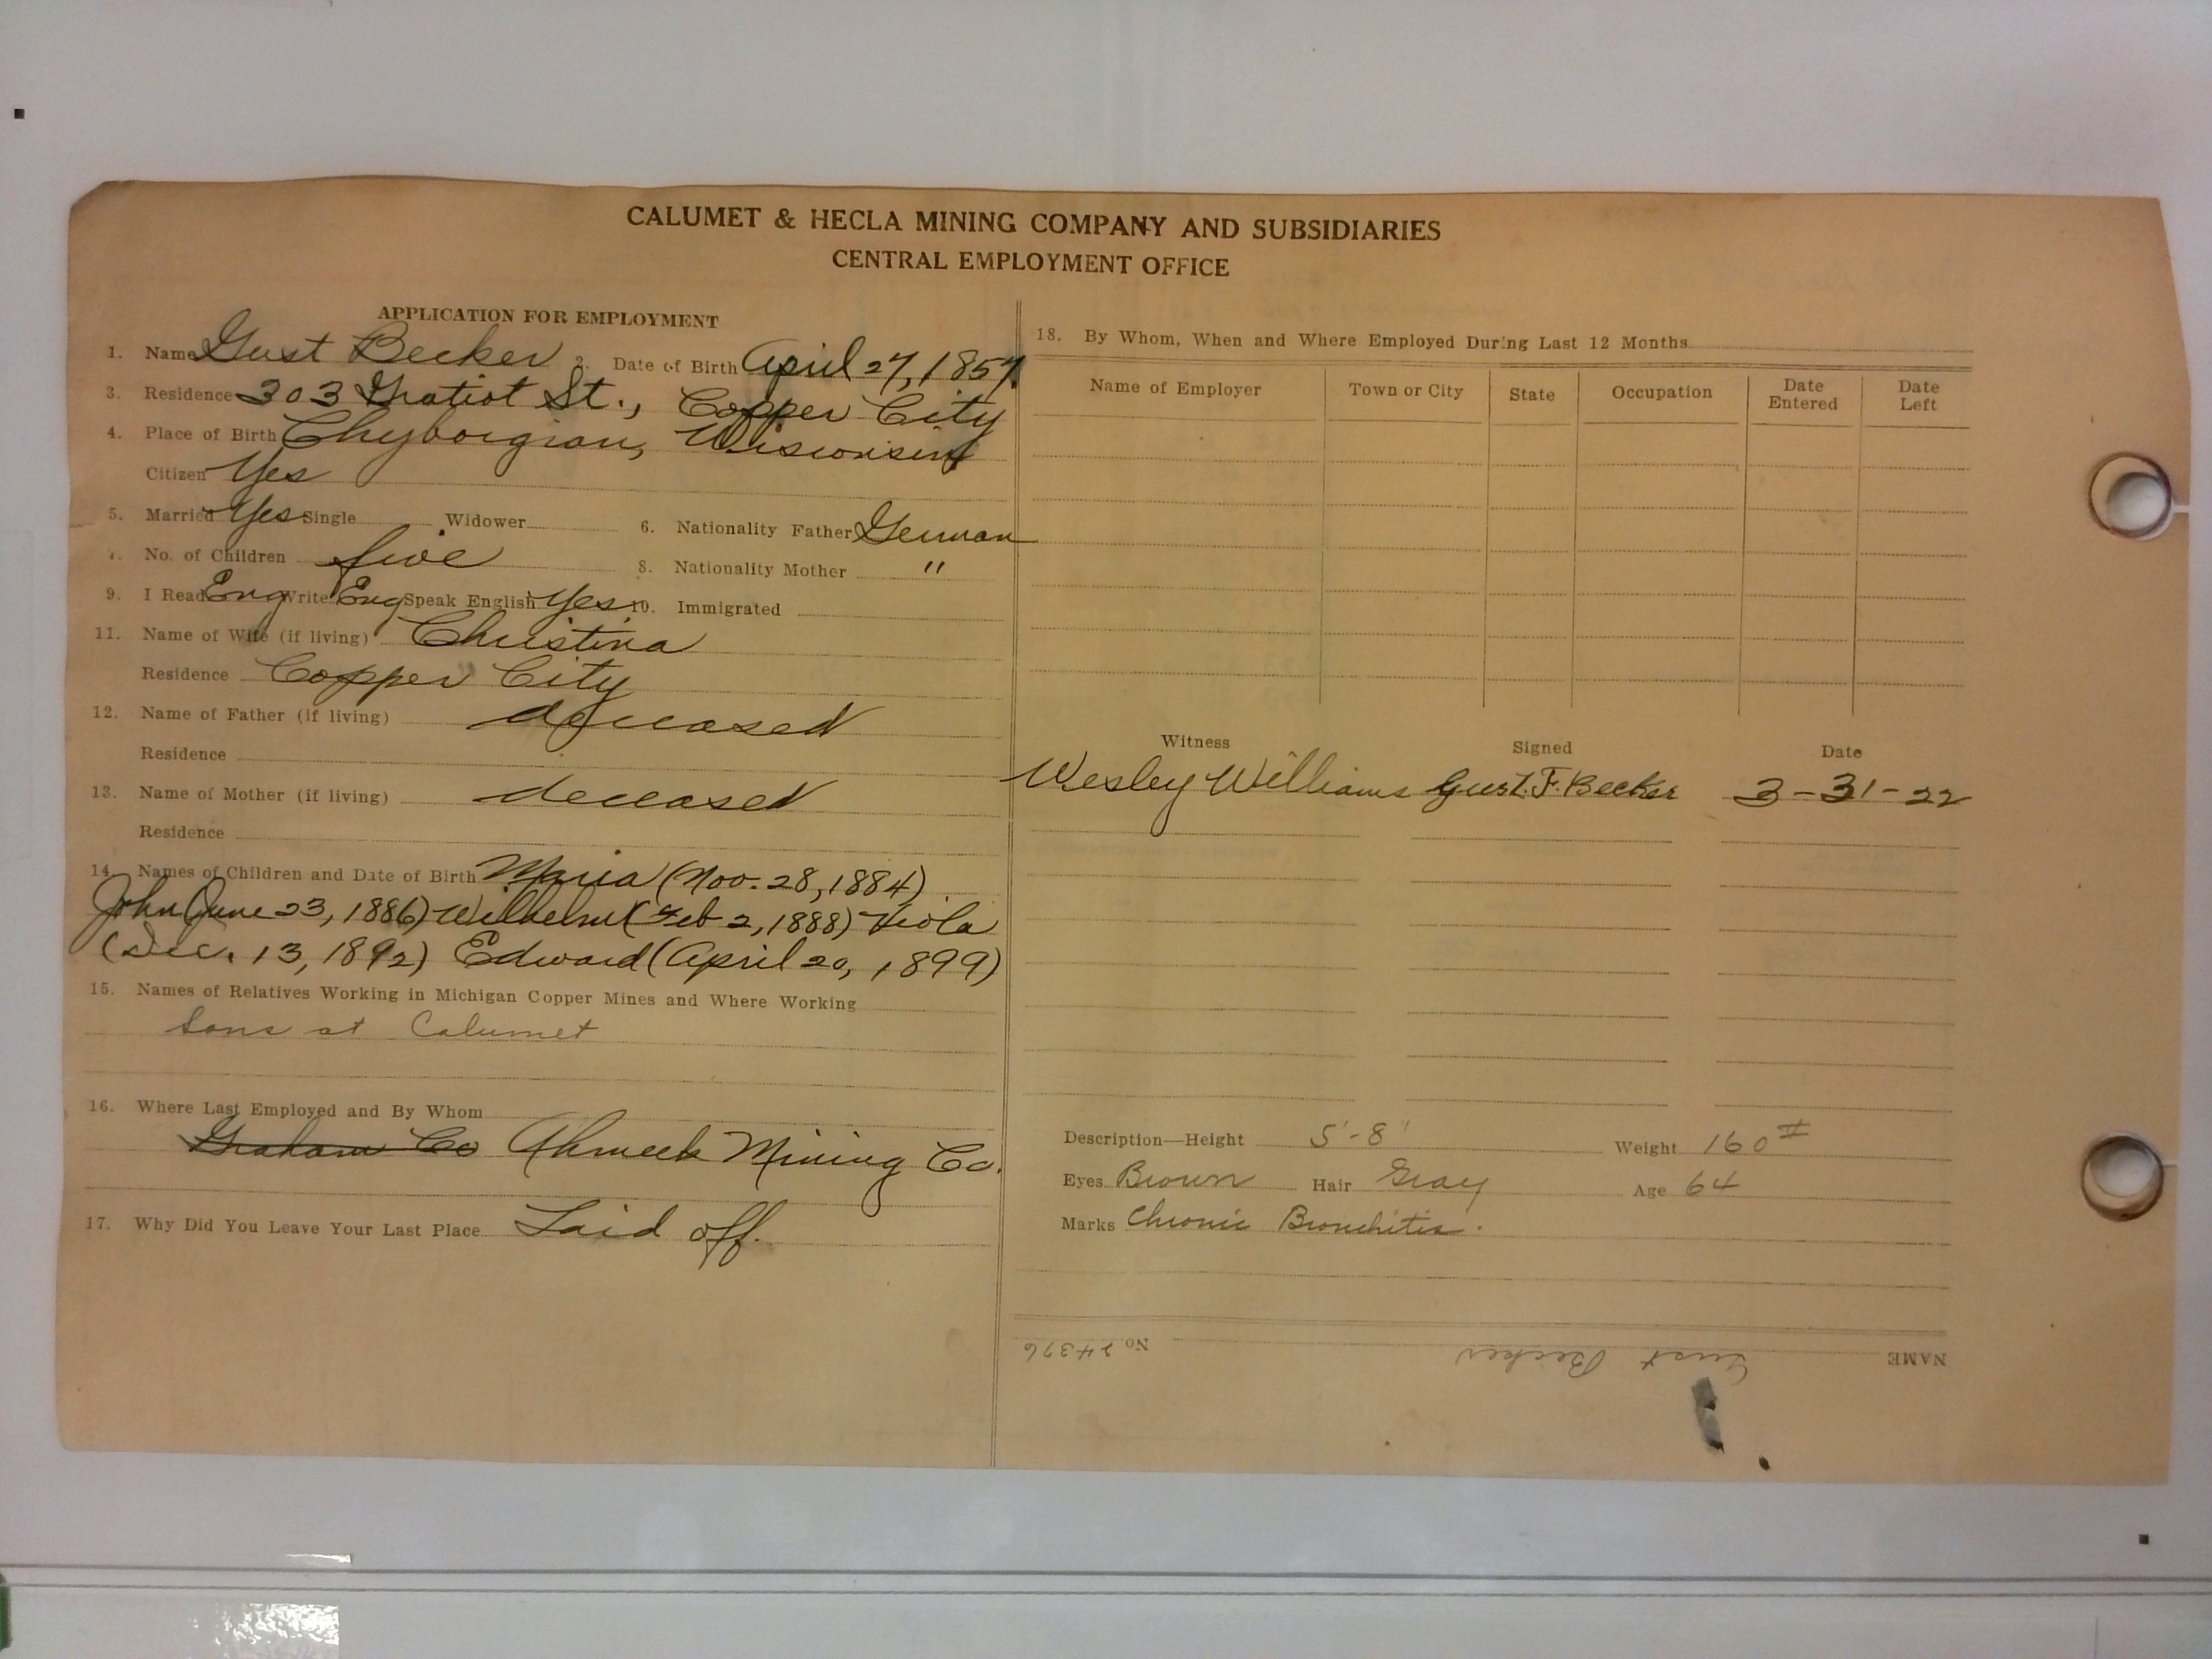 CALUMET & HECLA MINING COMPANY AND SUBSIDIARIES
CENTRAL EMPLOYMENT OFFICE
APPLICATION FOR EMPLOYMENT
1. Name Gust Becker 2. Date of Birth April 27, 1857.
3. Residence 303 Gratiot St., Copper City
4. Place of Birth Chyborgian, Wisconsin
Citizen Yes
5. Married Yes Single Widower 6. Nationality Father German
7. No. of Children five 8. Nationality Mother "
9. I Read Eng Write Eng Speak English Yes 10. Immigrated
11. Name of Wife (if living) Christina
Residence Copper City
12. Name of Father (if living) deceased
Residence
13. Name of Mother (if living) deceased
Residence
14. Names of Children and Date of Birth Maria (Nov. 28, 1884)
John (June 23, 1886) Wilhelm (Feb 2, 1888) Viola
(Dec. 13, 1892) Edward (April 20, 1899)
15. Names of Relatives Working in Michigan Copper Mines and Where Working
Sons at Calumet
16. Where Last Employed and By Whom
Graham Co Ahmeek Mining Co.
17. Why Did You Leave Your Last Place Laid off.
18. By Whom, When and Where Employed During Last 12 Months
Name of Employer Town or City State Occupation Date Entered Date Left
Witness Signed Date
Wesley Williams Gust. F. Becker 3-31-22
Description—Height 5'-8' Weight 160#
Eyes Brown Hair Gray Age 64
Marks Chronic Bronchitis.
NAME Gust Becker No. 24376